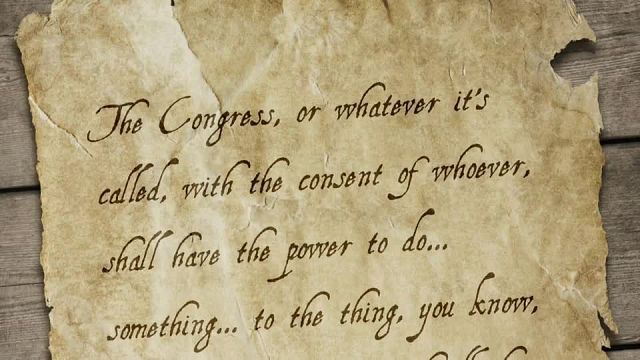 The Congress, or whatever it's
called, with the consent of whoever,
shall have the power to do...
something... to the thing, you know,